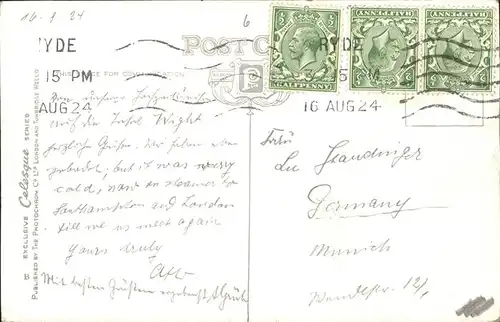 16.8.24
6
RYDE
15 PM
AUG 24
POST C
THIS SPACE FOR COMMUNICATION
HALFPENNY
HALFPENNY
HALFPENNY
RYDE
5 PM
16 AUG 24
Von unserer Hochzeitsreise
auf die Insel Wight
herzliche Grüße. Wir haben
gebadet, but it was very
cold, now on steamer to
Southampton and London
till we us meet again
Yours truly
Mit besten Grüßen
Frau
Lu Staudinger
Germany
Munich
EXCLUSIVE Celesque SERIES
PUBLISHED BY THE PHOTOCHROM CO. LTD LONDON AND TUNBRIDGE WELLS